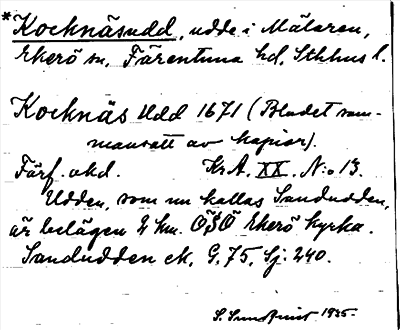 *Kocknäsudd, udde i Mälaren,
Ekerö sn, Färentuna hd, Sthlms l.
Kocknäs Udd 1671 (Bladet sam-
mansatt av kopior).
Förf. okd. Kr.A. XX, N:o 13.
Udden, som nu kallas Sandudden,
är belägen 2 km. ÖSÖ Ekerö kyrka.
Sandudden ek. G. 75, Sj. 240.
S. Sundqvist 1935.